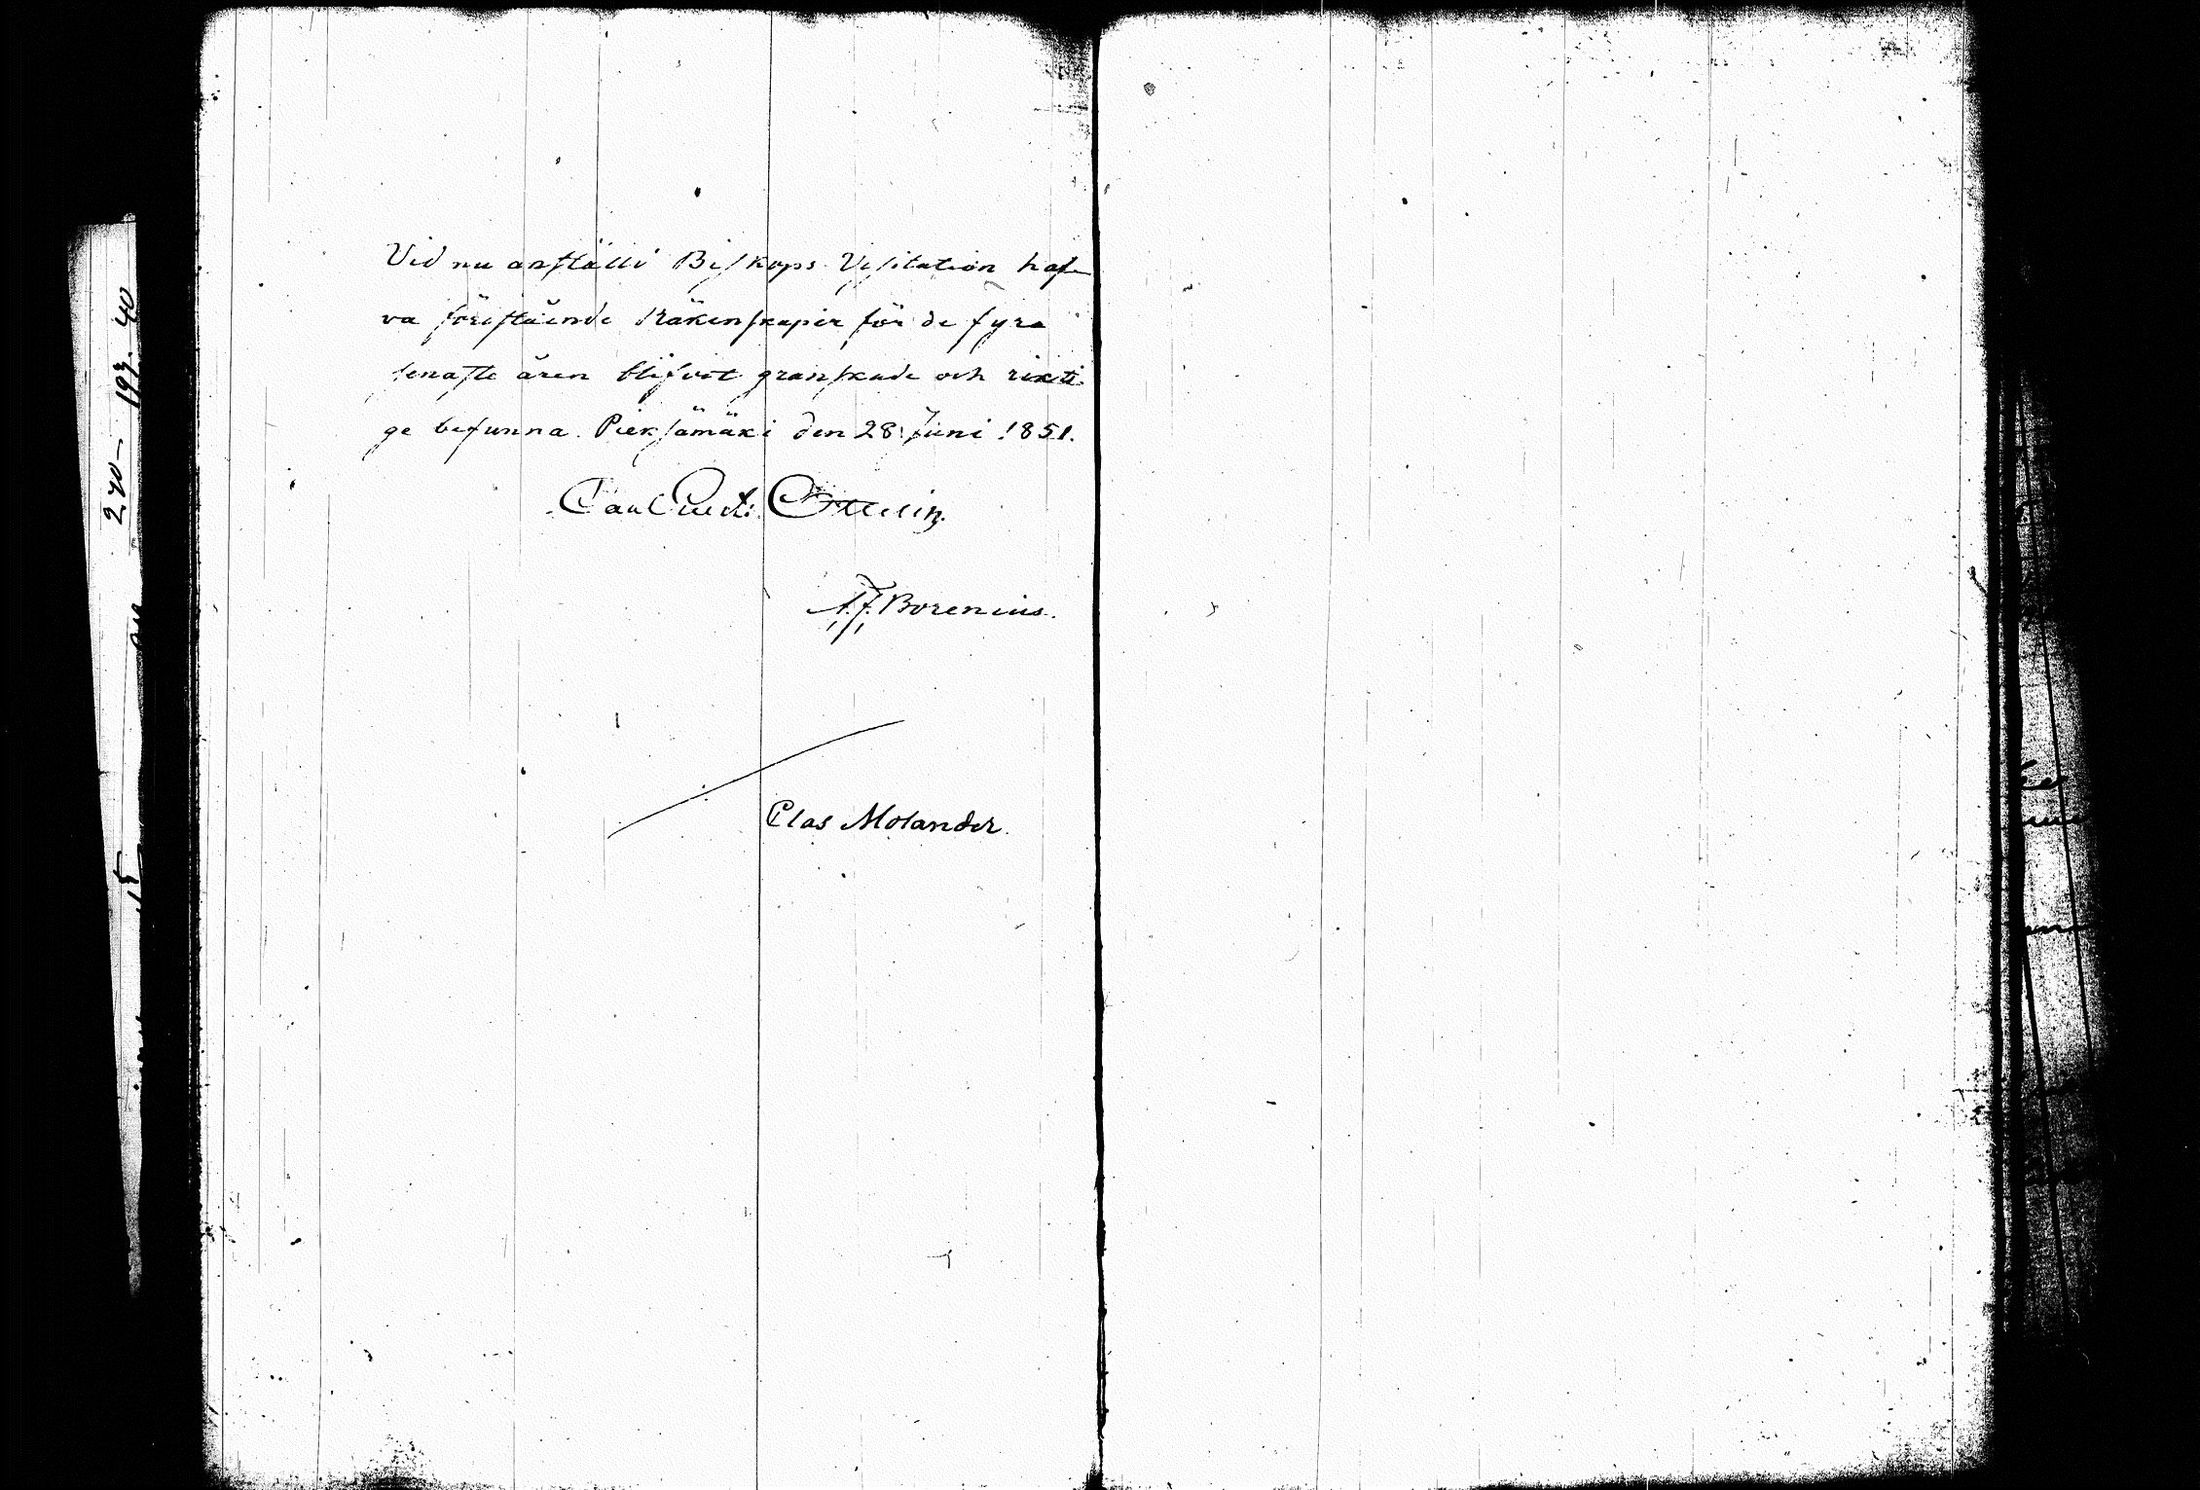 Vid nu anställd Biskops Visitation haf-
va föreståënde Räkenskaper för de fyra
senaste åren blifvit granskade och rikti-
ge befunna. Pieksämäki den 28 Juni 1851.
Carl Gust: Ottelin.
A. F. Borenius.
Clas Molander.
270 — 197. 40
15